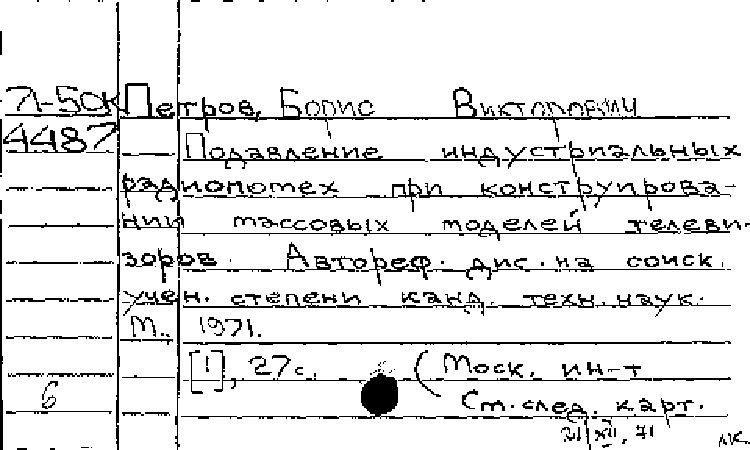 71-50к Петров, Борис Викторович
4487 Подавление индустриальных
радиопомех при конструирова-
нии массовых моделей телеви-
зоров. Автореф. дис. на соиск.
учен. степени канд. техн. наук.
М., 1971.
[1], 27с. (Моск. ин-т
6 См. след. карт.
21/XII, 71